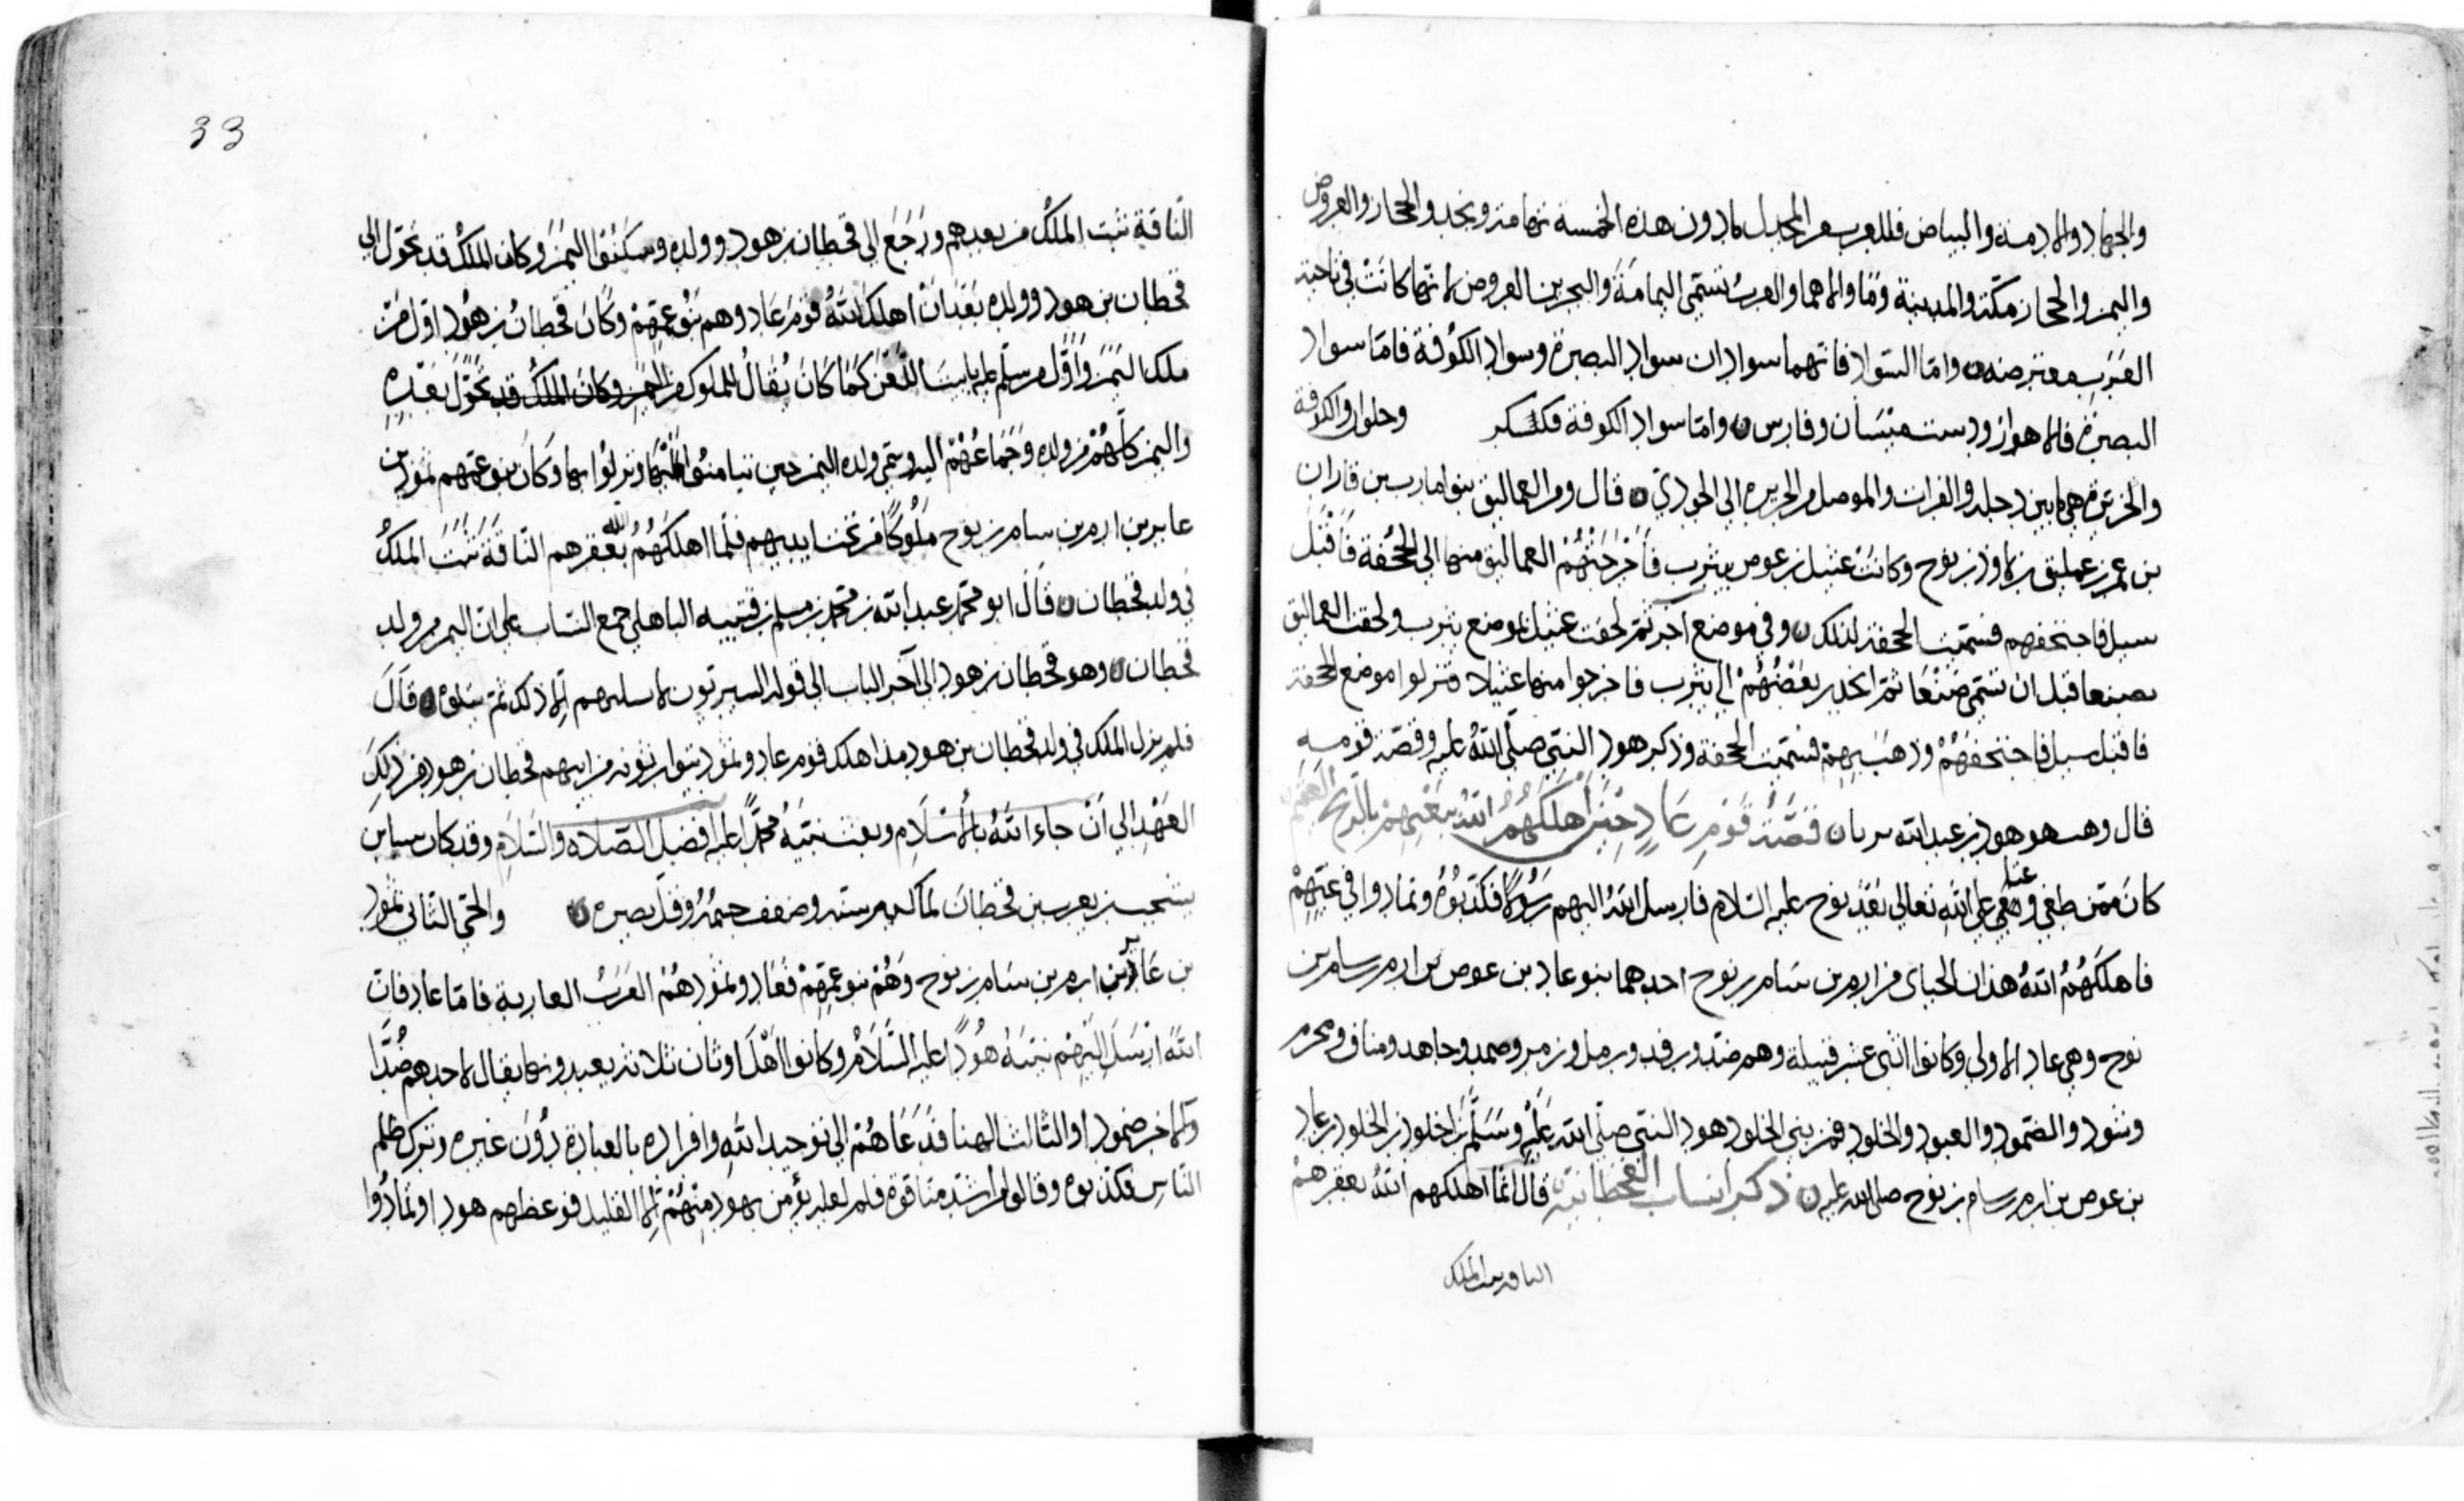 والجهاد والادمة والبياض فللعرب الجبل ما دون هذه الخمسة تهامة ونجد والحجاز والعروض
واليمن والحجاز مكة والمدينة وما والاهما والعرب تسمي اليمامة والبحرين العروض لانها كانت في ناحية
معترضه واما السواد فانهما سوادان سواد البصرة وسواد الكوفة فاما سواد
البصرة فالاهواز ودست ميسان وفارس واما سواد الكوفة فكسكر وحلوان والكوفة
والجزيرة هي ما بين دجلة والفرات والموصل من الجزيرة الى الجودي قال ومن العماليق بنو امارب بن فاران
بن عمرو بن عمليق بن لاوذ بن نوح وكانت عبيل بن عوص بيثرب فاخرجتهم العماليق منها الى الجحفة فاقبل
سيل فاجتحفهم فسميت الجحفة لذلك وفي موضع آخر ثم لحقت عبيل بموضع يثرب ولحقت العماليق
بصنعا قبل ان تسمى صنعا ثم انحدر بعضهم الى يثرب فاخرجوا منها عبيلا فنزلوا موضع الجحفة
فاقبل سيل فاجتحفهم وذهب بهم فسميت الجحفة وذكر هود النبي صلى الله عليه وقصة قومه
قال وهب هو هود بن عبد الله بن قصة قوم عاد حين اهلكهم الله ببغيهم بالريح العقيم
كان ممن طغى وعتا على الله تعالى بعد نوح عليه السلام فارسل الله اليهم رسولا فكذبوه وتمادوا في غيهم
فاهلكهم الله هذان الحيان من ارم بن سام بن نوح احدهما بنو عاد بن عوص بن ارم بن سام بن
نوح وهي عاد الاولى وكانوا اثنى عشر قبيلة وهم ضد ورفد ورمل وزمر وصمد وجاهد ومناف ومحرم
وسود والصمود والعبود والخلود فمن بني الخلود هود النبي صلى الله عليه وسلم بن الخلود بن عاد
بن عوص بن ارم بن سام بن نوح صلى الله عليه ذكر انساب القحطانية قال لما اهلكهم الله بعقرهم
الناقة ثبت الملك
33
الناقة ثبت الملك من بعدهم ورجع الى قحطان بن هود وولده وسكنوا اليمن وكان الملك قد تحول الى
قحطان بن هود وولده بعد ان اهلك الله قوم عاد وهم بنو عمهم وكان قحطان بن هود اول من
ملك اليمن واول من سلم عليه بابيت اللعن كما كان يقال للملوك من وكان الملك قد تحول بعده
واليمن كلهم من ولده وجماعهم اليه وسمى ولده اليمن حين تيامنوا اليها ونزلوا بها وكان بنو عمهم ثمود بن
عابر بن ارم بن سام بن نوح ملوكا من تحت ايديهم فلما اهلكهم الله بعقرهم الناقة ثبت الملك
في ولد قحطان قال ابو محمد عبد الله بن محمد بن مسلم بن قتيبه الباهلي جمع النساب على ان اليمن من ولد
قحطان وهو قحطان بن هود الى آخر الباب الى قوله
فلم يزل الملك في ولد قحطان بن هود مذ اهلك قوم عاد وثمود يتوارثونه من ابيهم قحطان بن هود من ذلك
العهد الى ان جاء الله بالاسلام وبعث نبيه محمدا عليه افضل الصلاة والسلام وقد كان سبا بن
يشجب بن يعرب بن قحطان لما كبر سنه وضعف جسمه وقل بصره والحي الثاني ثمود
بن عابر بن ارم بن سام بن نوح وهم بنو عمهم فعاد وثمود هم العرب العاربة فاما عاد فان
الله ارسل اليهم نبيه هودا عليه السلام وكانوا اهل اوثان ثلاثة يعبدونها يقال لاحدهم ضدا
وللآخر ضمودا والثالث الهنا فدعاهم الى توحيد الله وافراده بالعبادة دون غيره وترك ظلم
الناس فكذبوه وقالوا من اشد منا قوة فلم يؤمن بهود منهم الا القليل فوعظهم هود اوتمادوا